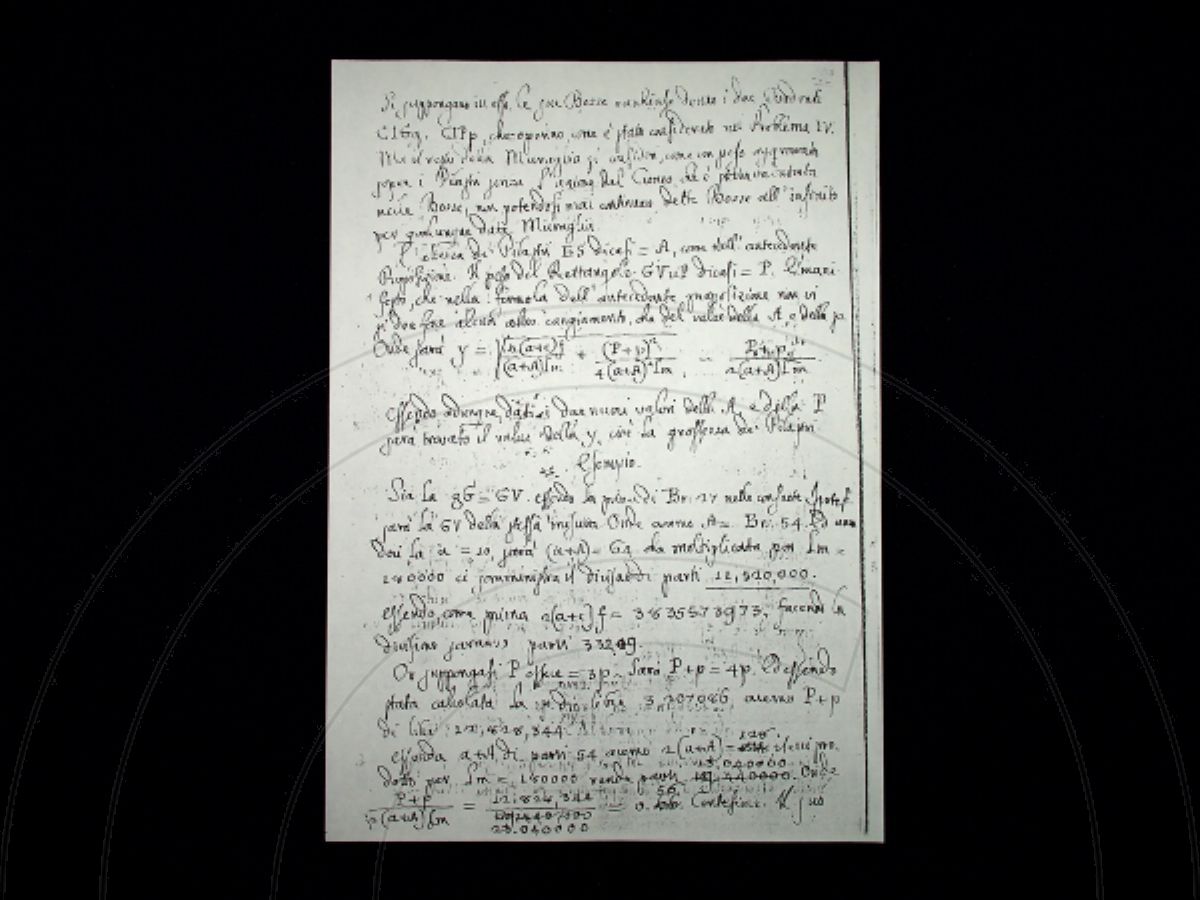 Si suppongano in esso le sue Basse continuate dentro i due
CIGg. CIPp, che operino, come è stato considerato nel Problema IV.
Ma il resto della Muraglia si consideri, come un peso aggravante
sopra i Pilastri senza l'azione del Cuneo, che è
nelle Basse, non potendosi mai continuare dette Basse all'infinito
per qualunque data Muraglia.
L'altezza de' Pilastri ES dicasi = A, come nell'antecedente
Proposizione. Il peso del Rettangolo GVuP dicasi = P. È mani
festo, che nella formola dell'antecedente proposizione non vi
si deve fare alcun altro cangiamento, che del valore della A, e della p.
Onde sarà y = √ 2(a+c)f / (a+A)lm + (P+p)² / 4(a+A)²lm - P+p / 2(a+A)lm
Essendo adunque dati i due nuovi valori della A, e della P
sarà trovato il valore della y, cioè la grossezza de' Pilastri
Esempio.
Sia la gG = GV. essendo la prima di Br. 27 nelle consuete
sarà la GV della stessa misura. Onde avremo A = Br. 54. Ed
la a = 10, sarà (a+A) = 64 che moltiplicata per lm =
180000 ci somministra il divisore di parti 11,520,000.
Essendo, come prima 2(a+c)f = 3835573973, facendo la
divisione saranno parti 33249.
Or suppongasi P essere = 3p. Sarà P+p = 4p. Ed essendo
stata calcolata la p. di libre 3,207086, avremo P+p
di libre 12,828,344.
Essendo a+A di parti 54 avremo 2(a+A) = 128 il cui pro
dotto per lm = 180000 rende parti 23,040000. Onde
P+p / 2(a+A)lm = 12.828,344 / 23.040000 = 0.56 Centesimi. Il suo